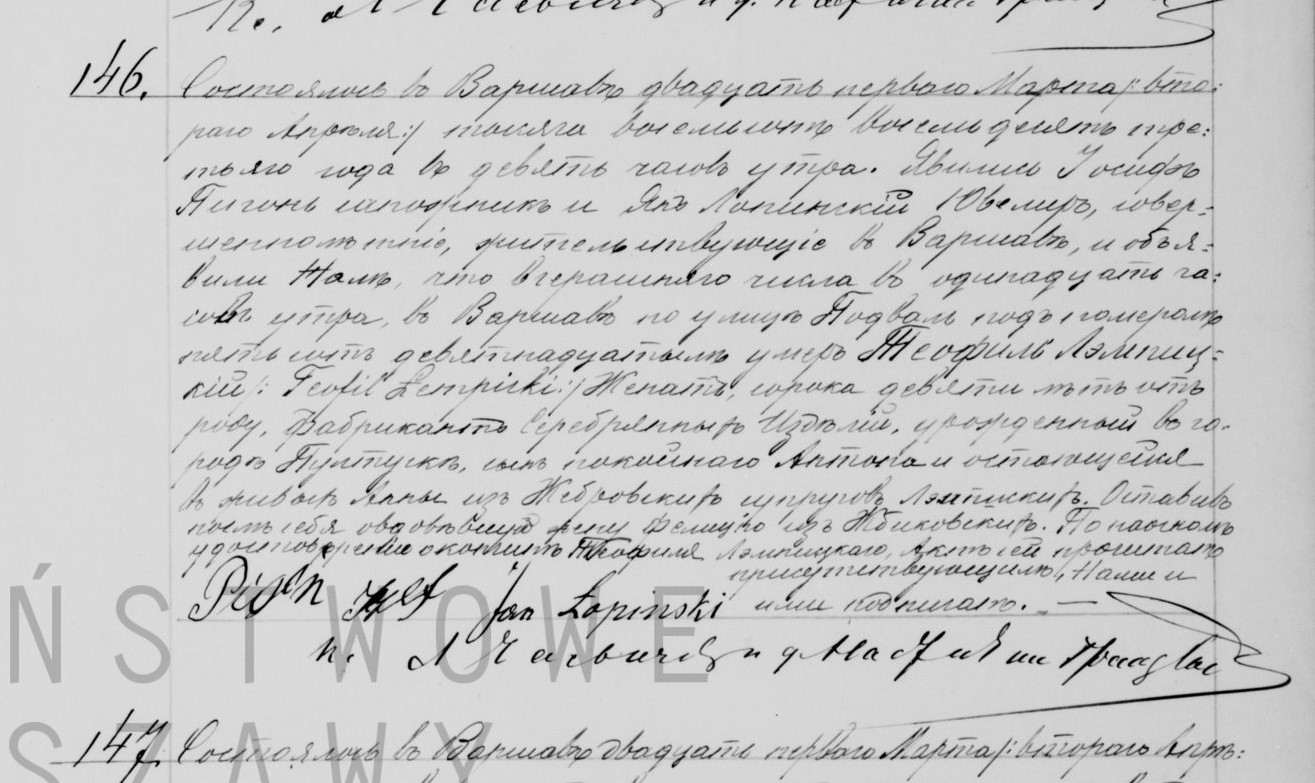 146. Состоялось въ Варшавѣ двадцать перваго Марта /: вто:
раго Апрѣля :/ тысяча восемьсотъ восемьдесятъ тре:
тьяго года въ девять часовъ утра. Явились Іосифъ
Пигонь сапожникъ и Янъ Лопинскій Ювелиръ, совер-
шеннолѣтніе, жительствующіе въ Варшавѣ, и объя-
вили Намъ, что вчерашняго числа въ одинадцать ча:
совъ утра, въ Варшавѣ по улицѣ Подваль подъ номеромъ
пятьсотъ девятнадцатымъ умеръ Теофиль Лэмпиц-
кій /: Teofil Łempicki :/ Женатъ, сорока девяти лѣтъ отъ
роду, Фабрикантъ Серебрянныхъ Издѣлій, урожденный въ го-
родѣ Пултускѣ, сынъ покойнаго Антона и остающейся
въ живыхъ Анны изъ Жебровскихъ супруговъ Лэмпицкихъ. Оставивъ
послѣ себя овдовѣвшую жену Фелицію изъ Жбиковскихъ. По наочномъ
удостовѣреніи о кончинѣ Теофиля Лэмпицкаго, Актъ сей прочитанъ
присутствующимъ, Нами и
Jan Łopinski ими подписанъ. —
ŃSTWOWE
147. Состоялось въ Варшавѣ двадцать перваго Марта /: втораго Апрѣ:
SZAWY